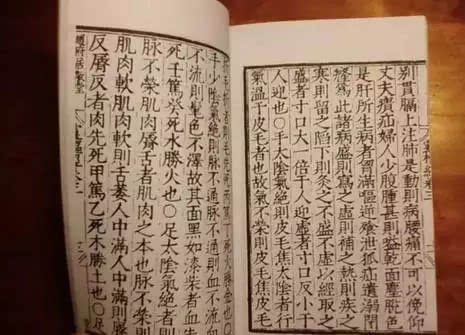 别貫膈上注肺是動則病腰痛不可以俛仰
丈夫㿉疝婦人少腹腫甚則嗌乾面塵脫色
是肝所生病者胷滿嘔逆飱泄狐疝遺溺閉
癃爲此諸病盛則寫之虛則補之熱則疾之
寒則留之陷下則灸之不盛不虛以經取之
盛者寸口大一倍于人迎虛者寸口反小于
人迎也○手太陰氣絶則皮毛焦太陰者行
氣溫于皮毛者也故氣不榮則皮毛焦皮毛
靈樞經卷三
手少陰氣絶則脉不通脉不通則血不流血
不流則髦色不澤故其面黑如漆柴者血先
死壬篤癸死水勝火也○足太陰氣絶者則
脉不榮肌肉脣舌者肌肉之本也脉不榮則
肌肉軟肌肉軟則舌萎人中滿人中滿則脣
反脣反者肉先死甲篤乙死木勝土也○足
趙府居敬堂